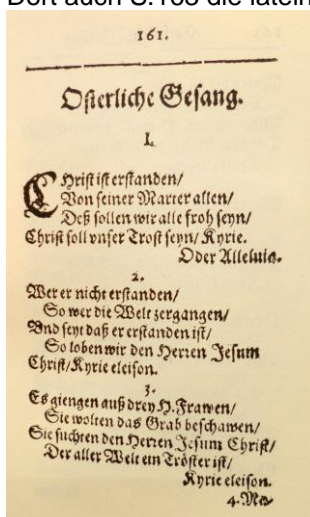 Dort auch S.168 die latein
161.
Osterliche Gesang.
I.
Christ ist erstanden/
Von seiner Marter allen/
Deß sollen wir alle froh seyn/
Christ soll vnser Trost seyn/ Kyrie.
Oder Alleluia.
2.
Wer er nicht erstanden/
So wer die Welt zergangen/
Vnd seyt daß er erstanden ist/
So loben wir den Herren Jesum
Christ/Kyrie eleison.
3.
Es giengen auß drey H.Frawen/
Sie wolten das Grab beschawen/
Sie suchten den Herren Jesum Christ/
Der aller Welt ein Tröster ist/
Kyrie eleison.
4. Ma-